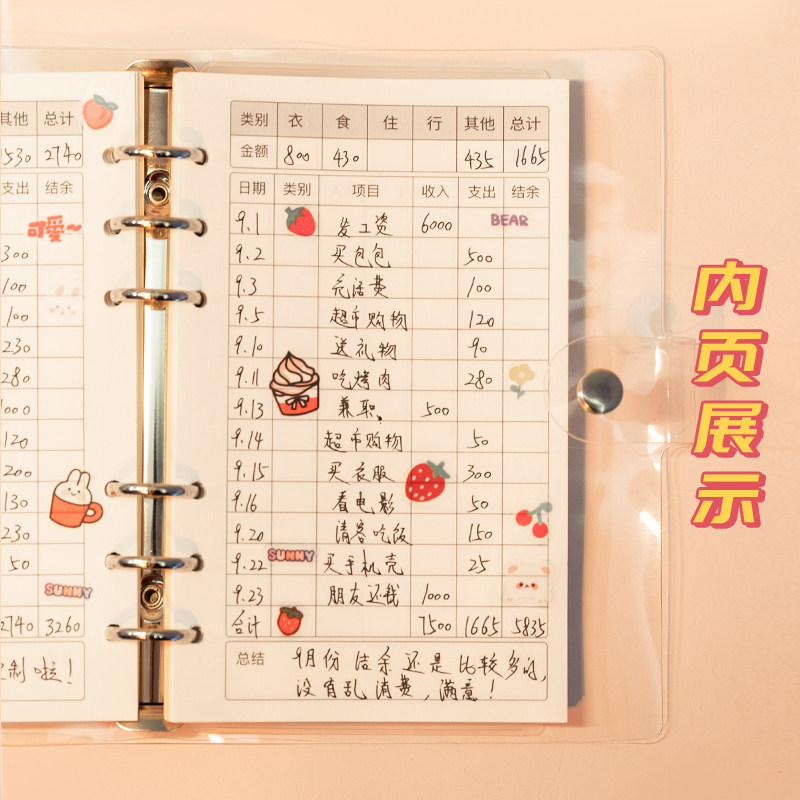 其他 总计
1530 2740
支出 结余
可爱~
300
100
100
230
280
1000
120
200
130
230
50
SUNNY
2740 3260
制啦！
类别 衣 食 住 行 其他 总计
金额 800 430 435 1665
日期 类别 项目 收入 支出 结余
9.1 发工资 6000 BEAR
9.2 买包包 500
9.3 充话费 100
9.5 超市购物 120
9.10 送礼物 90
9.11 吃烤肉 280
9.13 兼职 500
9.14 超市购物 50
9.15 买衣服 300
9.16 看电影 50
9.20 请客吃饭 150
9.22 SUNNY 买手机壳 25
9.23 朋友还钱 1000
合计 7500 1665 5835
总结 9月份结余还是比较多的，
没有乱消费，满意！
内页展示